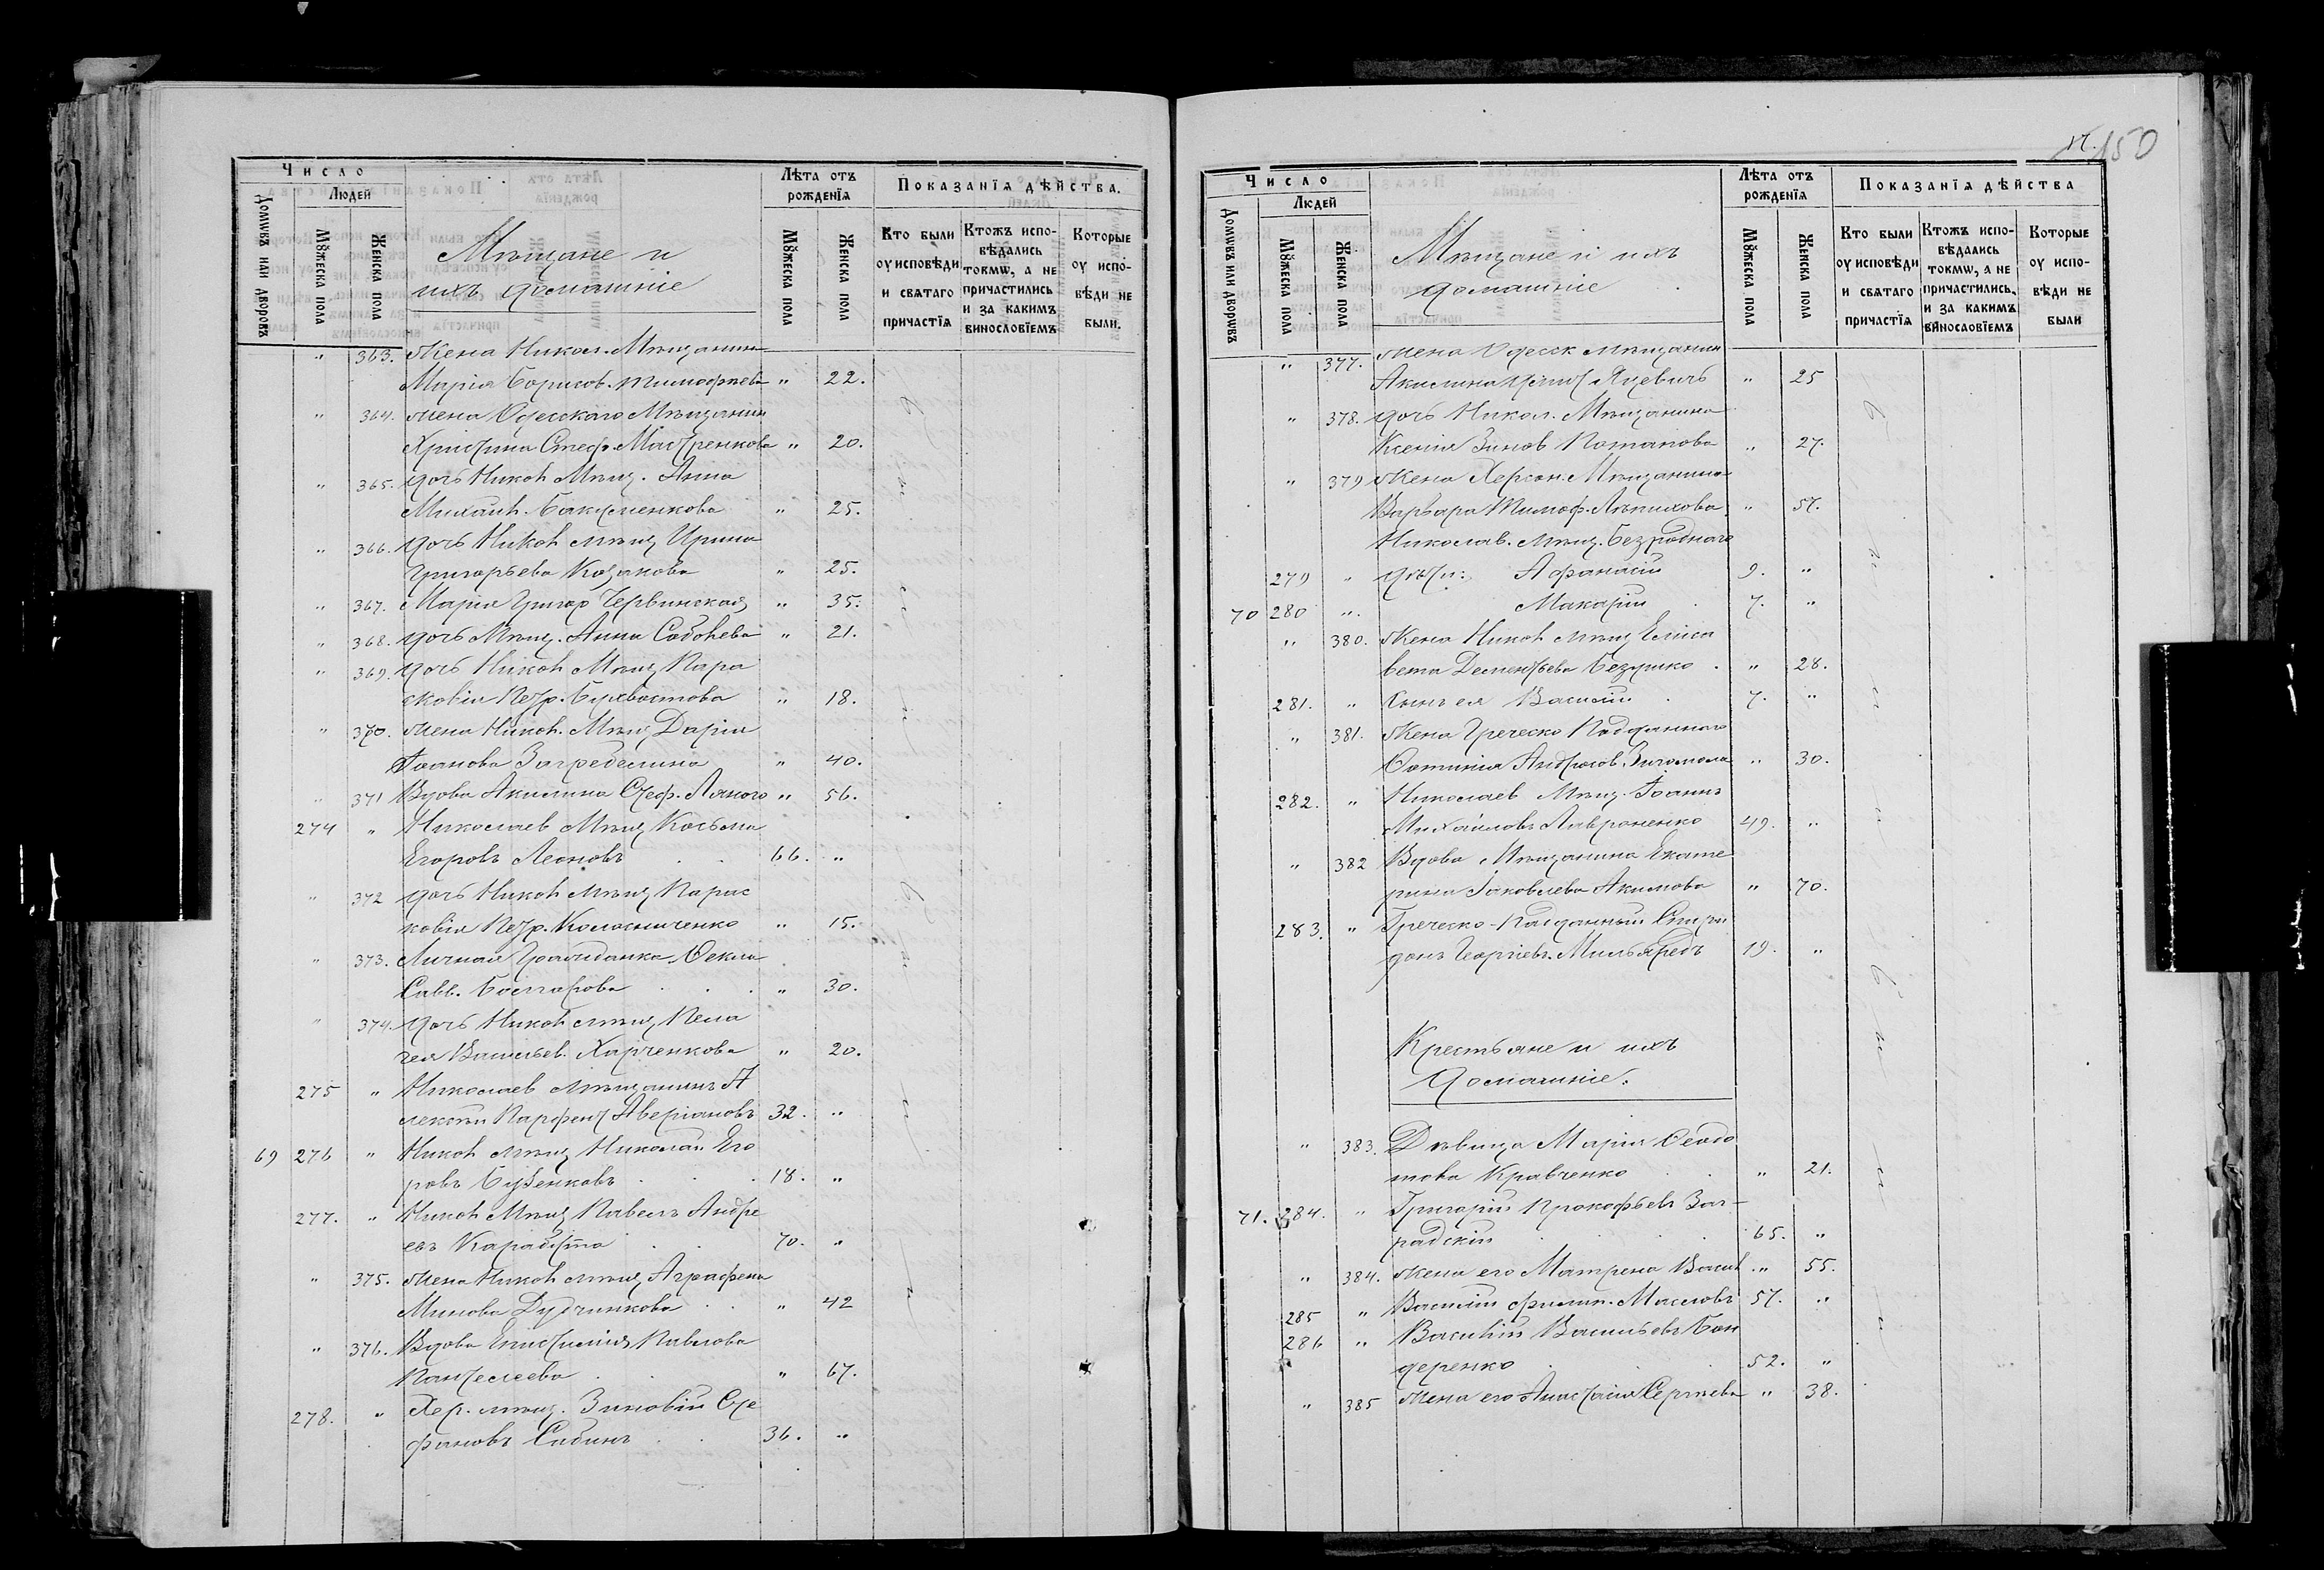 Число
Людей
Домѡвъ или дворовъ
Мꙋжеска пола
Женска пола
Мѣщане и
ихъ домашніе
Лѣта отъ
рожденїѧ
Мꙋжеска пола
Женска пола
Показанїѧ дѣйства.
Кто были
оу исповѣди
и свѧтаго
причастїѧ
Ктожъ испо-
вѣдались
токмѡ, а не
причастились
и за какимъ
винословїемъ
Которые
оу испо-
вѣди не
были.
" 363. Жена Никол. Мѣщанина
Марія Борисов. Тимофѣева " 22.
" 364. Жена Одесскаго Мѣщанин
Христина Стеф. Мастренкова " 20.
" 365. Дочь Никол Мѣщ. Анна
Михаил. Бакуменкова " 25.
" 366. Дочь Никол мѣщ Ирина
Григорьева Козакова " 25.
" 367. Марія Григор Червинская " 35.
" 368. Дочь Мѣщ. Анна Соболева " 21.
" 369. Дочь Никол Мѣщ Пара
сковія Петр. Бухвостова " 18.
" 370. Жена Никол. Мѣщ Дарія
Іоанова " 40.
" 371 Вдова Акилина Стеф. " 56.
274 " Николаев Мѣщ Косьма
Егоровъ Леоновъ 66. "
" 372 Дочь Никол мѣщ Парас
ковія Петр. Колесниченко " 15.
" 373. Личная Гражданка Ѳекла
Савв. Болгарова " 30.
" 374. Дочь Никол мѣщ Пела
гея Васильев. Харченкова " 20.
275 " Николаев мѣщанинъ А
лексѣй Парфент Аверіановъ 32. "
69 276 " Никол мѣщ Николай Его
ровъ 18. "
277. " Никол Мѣщ Павелъ Андре
евъ 70. "
" 375. Жена Никол мѣщ Агрофена
Минова Дудчинкова " 42
" 376. Вдова Епистимія Павлова
Пантелеева " 67.
278. " Хер. мѣщ. Зиновій Сте
фановъ Сабинъ 36. "
150
Число
Людей
Домѡвъ или дворѡвъ
Мꙋжеска пола
Женска пола
Мѣщане и ихъ
домашніе
Лѣта отъ
рожденїѧ
Мꙋжеска пола
Женска пола
Показанїѧ дѣйства
Кто были
оу исповѣди
и свѧтаго
причастїѧ
Ктожъ испо-
вѣдались
токмѡ, а не
причастились,
и за какимъ
винословїемъ
Которые
оу испо-
вѣди не
были
" 377. Жена Одесск мѣщанин
Акилина Яцевичъ " 25
" 378. Дочь Никол. Мѣщанина
Ксенія Зинов Потапова " 27.
" 379 Жена Херсон. Мѣщанина
Варвара Тимоф. Лѣпихова " 57.
Николав. мѣщ. Безроднаго
279 " дѣти: Афанасій 9. "
70 280 " Макарій 7. "
" 380. Жена Никол мѣщ Елиса
вета Дементьева Безушко " 28.
281. " Сынъ ея Василій 7. "
" 381. Жена Греческо Подданнаго
Фотинія " 30.
282. " Николаев Мѣщ. Іоаннъ
Михайловъ Лавроненко 49. "
" 382 Вдова Мѣщанина Екате
рина Іаковлева Акимова " 70.
283. " Греческо-Подданный Спири
донъ Георгіевъ 19. "
Крестьяне и ихъ
домашніе.
" 383. Дѣвица Марія Ѳеодо
това Кравченко " 21.
71. 284. " Григорій Прокофьевъ Заг-
радскій 65. "
" 384. Жена его Матрена Васил " 55.
285 " Василій Филип. Масловъ 57. "
286 " Василій Васильевъ Бон
деренко 52. "
" 385 Жена его Анастасія Сергѣева " 38.